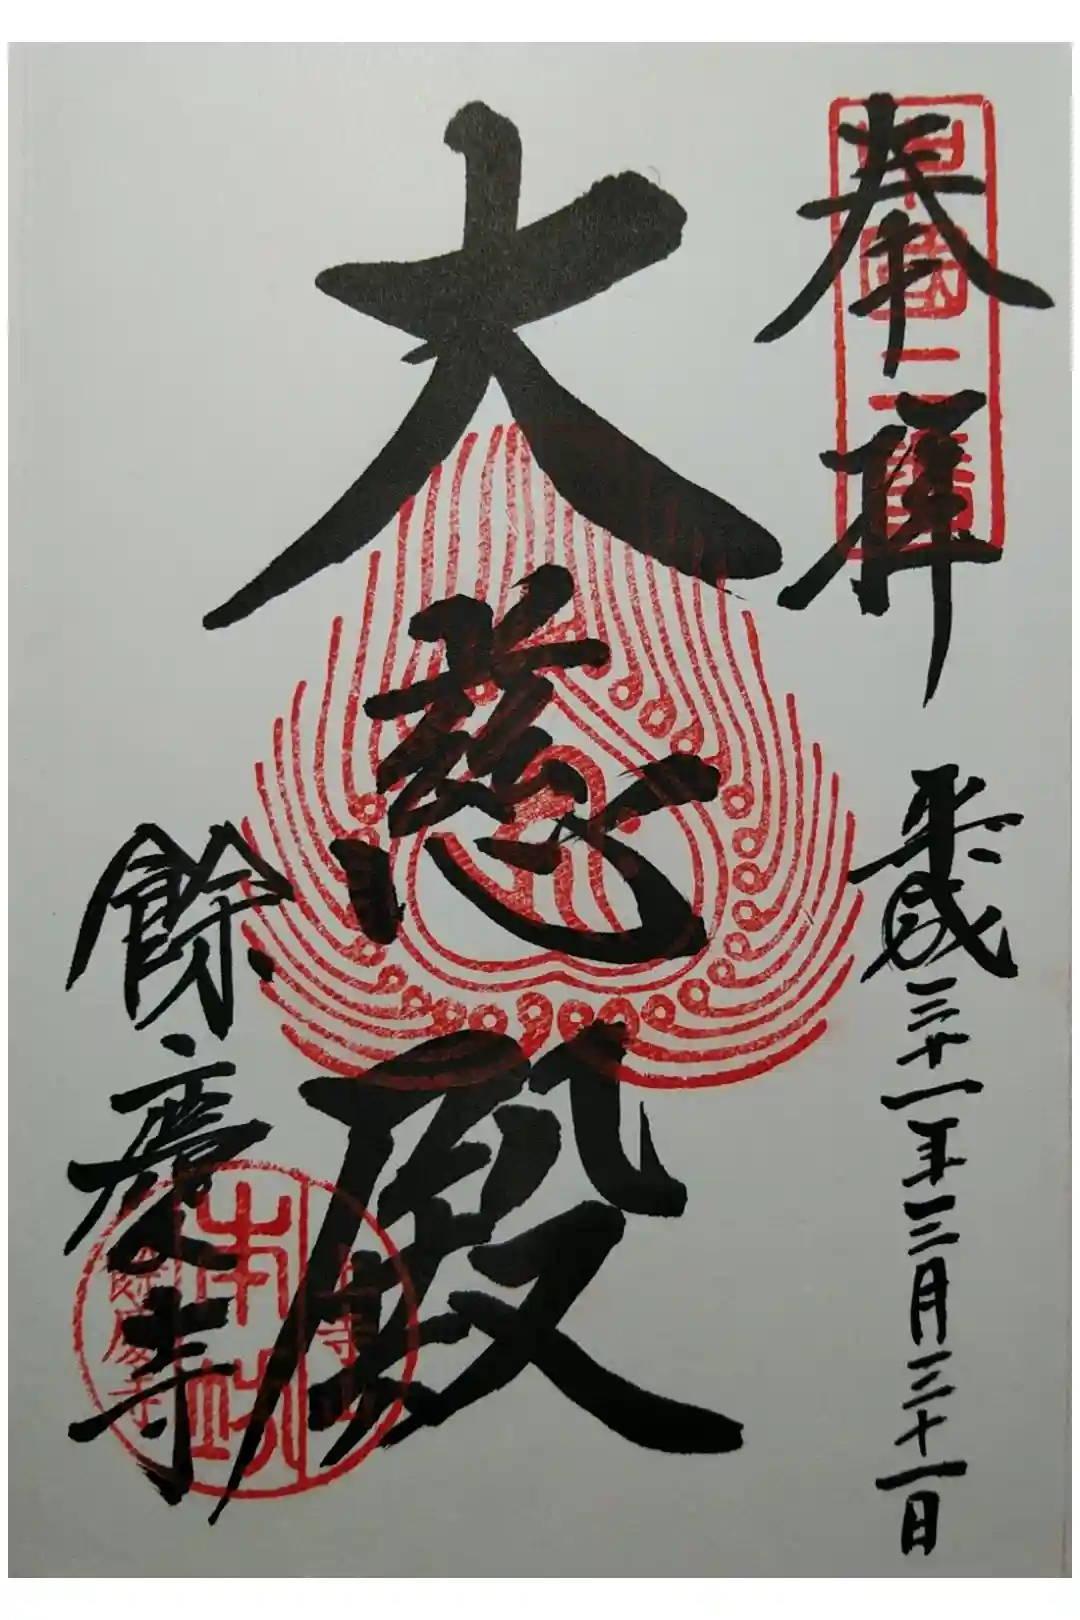 奉拝
平成三十一年三月三十一日
大慈殿
餘慶寺
本坊
餘慶寺